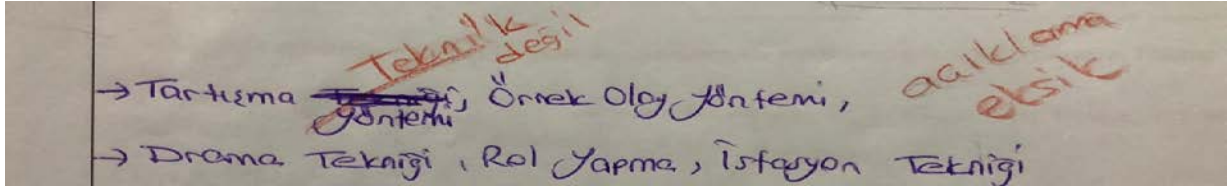 Teknik değil
açıklama eksik
→ Tartışma yöntemi, Örnek Olay yöntemi,
→ Drama Tekniği, Rol Yapma, İstasyon Tekniği